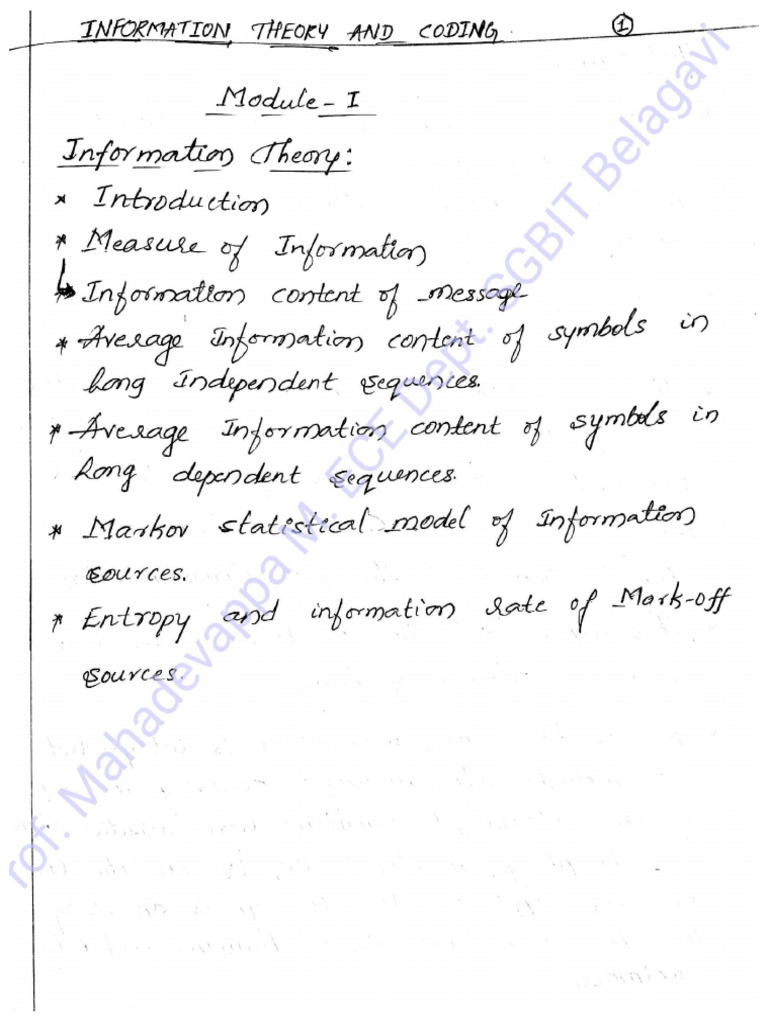 INFORMATION THEORY AND CODING. 1
Module - I
Information Theory:
* Introduction
* Measure of Information
* Information content of message
* Average Information content of symbols in
Long Independent sequences.
* Average Information content of symbols in
Long dependent sequences.
* Markov statistical model of Information
sources.
* Entropy and information rate of Mark-off
sources.
rof. Mahadevappa M. ECE Dept. SGBIT Belagavi